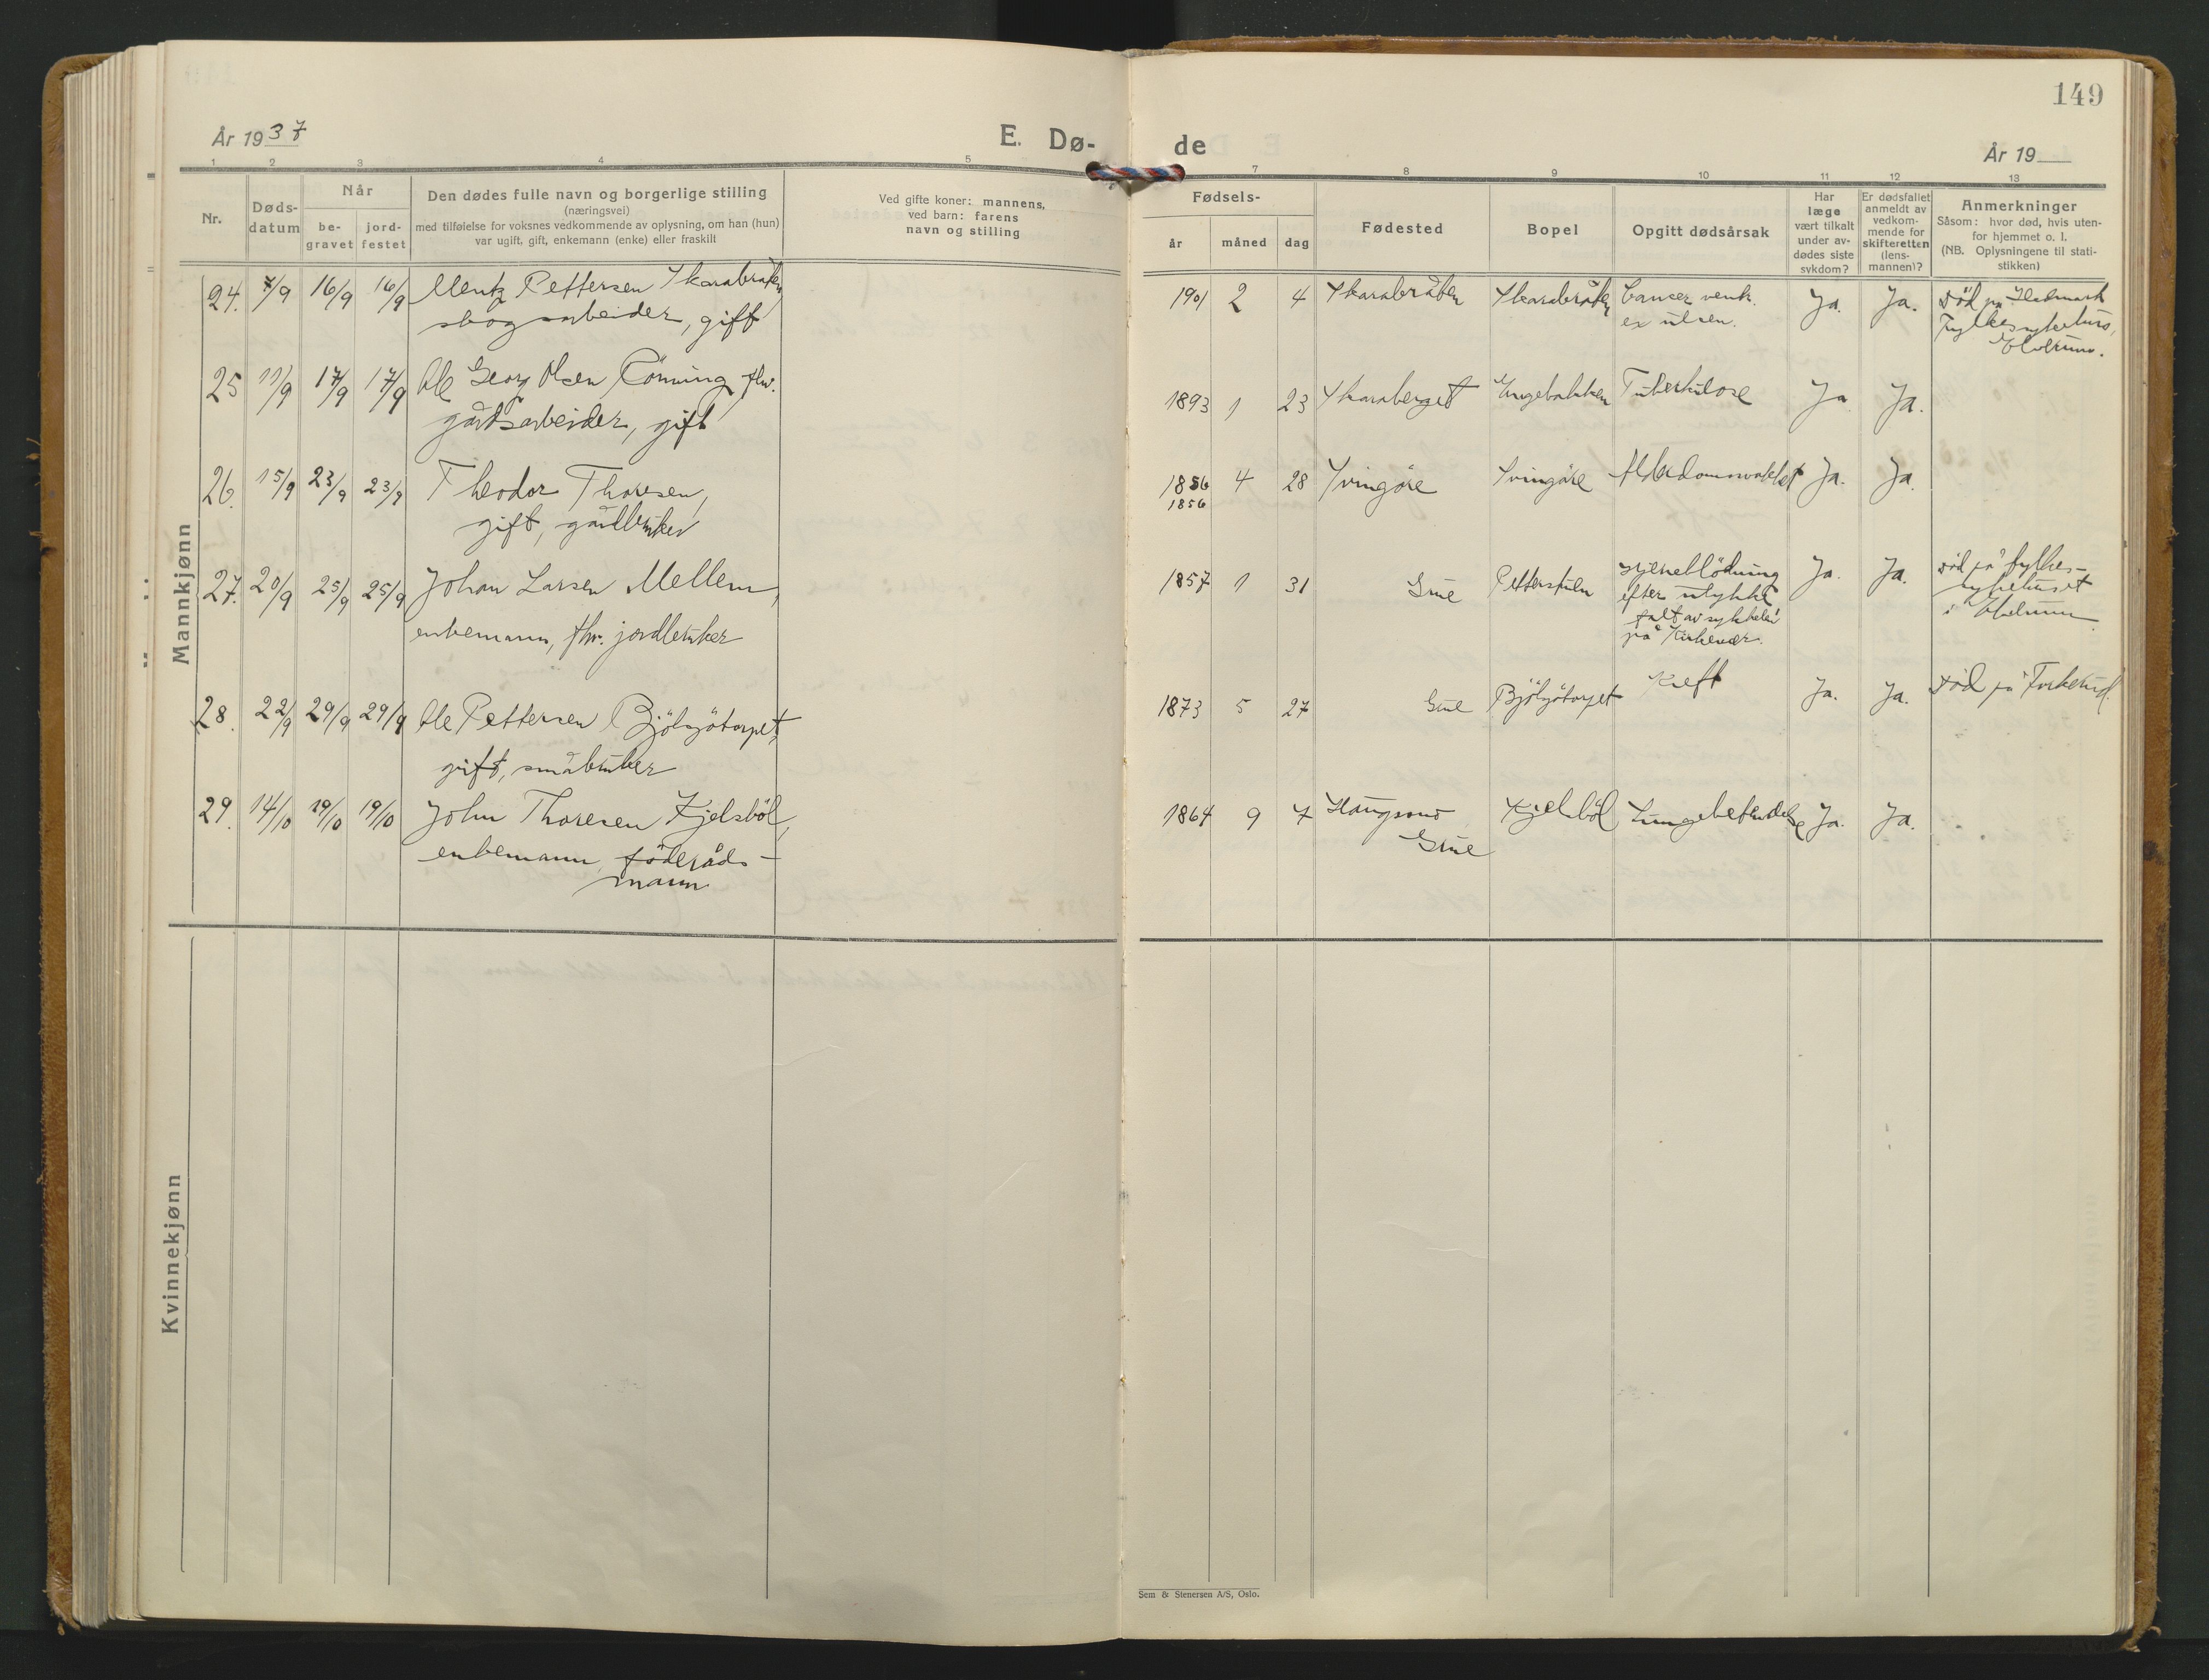 149
År 1937
E. Dø-
de
År 19
1 2 3 4 5
7 8 9 10 11 12 13
Nr.
Døds-
datum
Når
be-
gravet
jord-
festet
Den dødes fulle navn og borgerlige stilling
(næringsvei)
med tilføielse for voksnes vedkommende av oplysning, om han (hun)
var ugift, gift, enkemann (enke) eller fraskilt
Ved gifte koner: mannens,
ved barn: farens
navn og stilling
Fødsels-
år
måned
dag
Fødested
Bopel
Opgitt dødsårsak
Har
læge
vært tilkalt
under av-
dødes siste
sykdom?
Er dødsfallet
anmeldt av
vedkom-
mende for
skifteretten
(lens-
mannen)?
Anmerkninger
Såsom: hvor død, hvis uten-
for hjemmet o. l.
(NB. Oplysningene til stati-
stikken)
Mannkjønn
24. 7/9 16/9 16/9 Mentz Pettersen Skarabråten
skogsarbeider, gift
1901 2 4 Skarabråten Skarabråten Cancer ventr.
ex ulcen.
Ja. Ja. Död på Hedmark
Fylkessykehus,
Elverum.
25 11/9 17/9 17/9 Ole Georg Olsen Rönning fhv.
gårdsarbeider, gift
1893 1 23 Skaraberget Engebakken Tuberkulose Ja Ja.
26. 15/9 23/9 23/9 Theodor Thoresen,
gift, gårdbruker
1856 4 28 Svingöre Svingöre Alderdomssvakhet Ja. Ja.
1856
27. 20/9 25/9 25/9 Johan Larsen Mellem,
enkemann, fhv. jordbruker
1857 1 31 Grue Petterstuen Hjerneblödning
efter ulykke
falt av sykkelen
på Kirkenær.
Ja. Ja. Död på fylkes-
sykehuset
i Elverum
28. 22/9 29/9 29/9 Ole Pettersen Björsjötorpet,
gift, småbruker
1873 5 27 Grue Björsjötorpet Kreft Ja. Ja. Död på Torkerud.
29. 14/10 19/10 19/10 John Thoresen Kjelsböl,
enkemann, föderåds-
mann
1864 9 7 Haugsmo
Grue
Kjelsböl Lungebetendelse Ja. Ja.
Kvinnekjønn
Sem & Stenersen A/S, Oslo.